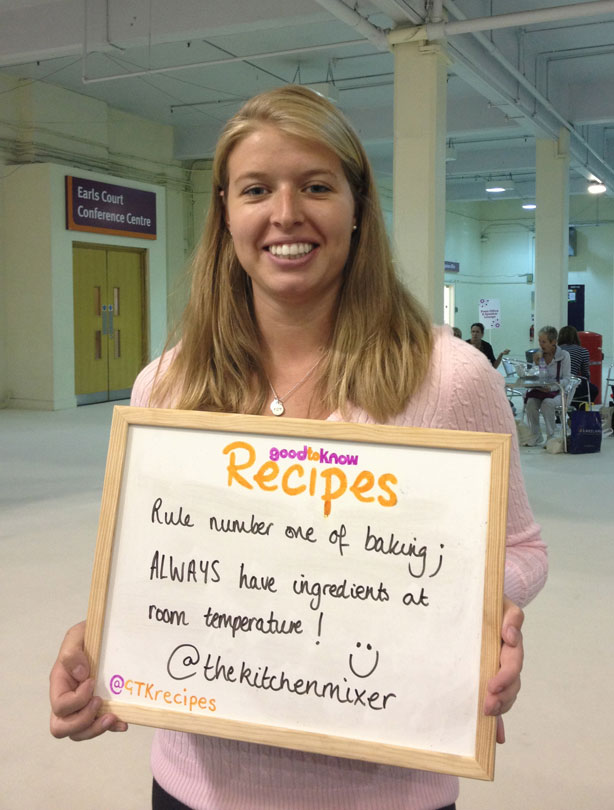 Earls Court
Conference Centre
goodtoknow
Recipes
Rule number one of baking;
ALWAYS have ingredients at
room temperature!
@thekitchenmixer
@GTKrecipes